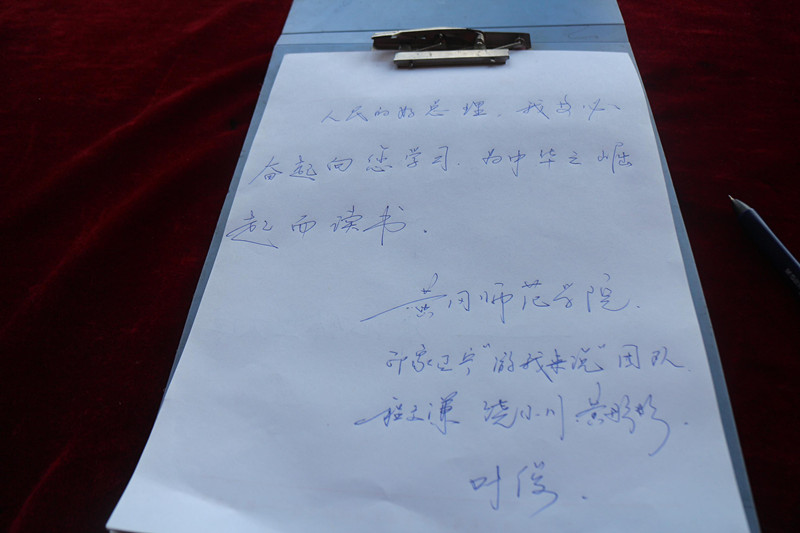 人民的好总理，我要以
奋起向您学习，为中华之崛
起而读书．
黄冈师范学院．
"游我来说"团队
程文谦 饶小川 黄彤彤．
叶俊．